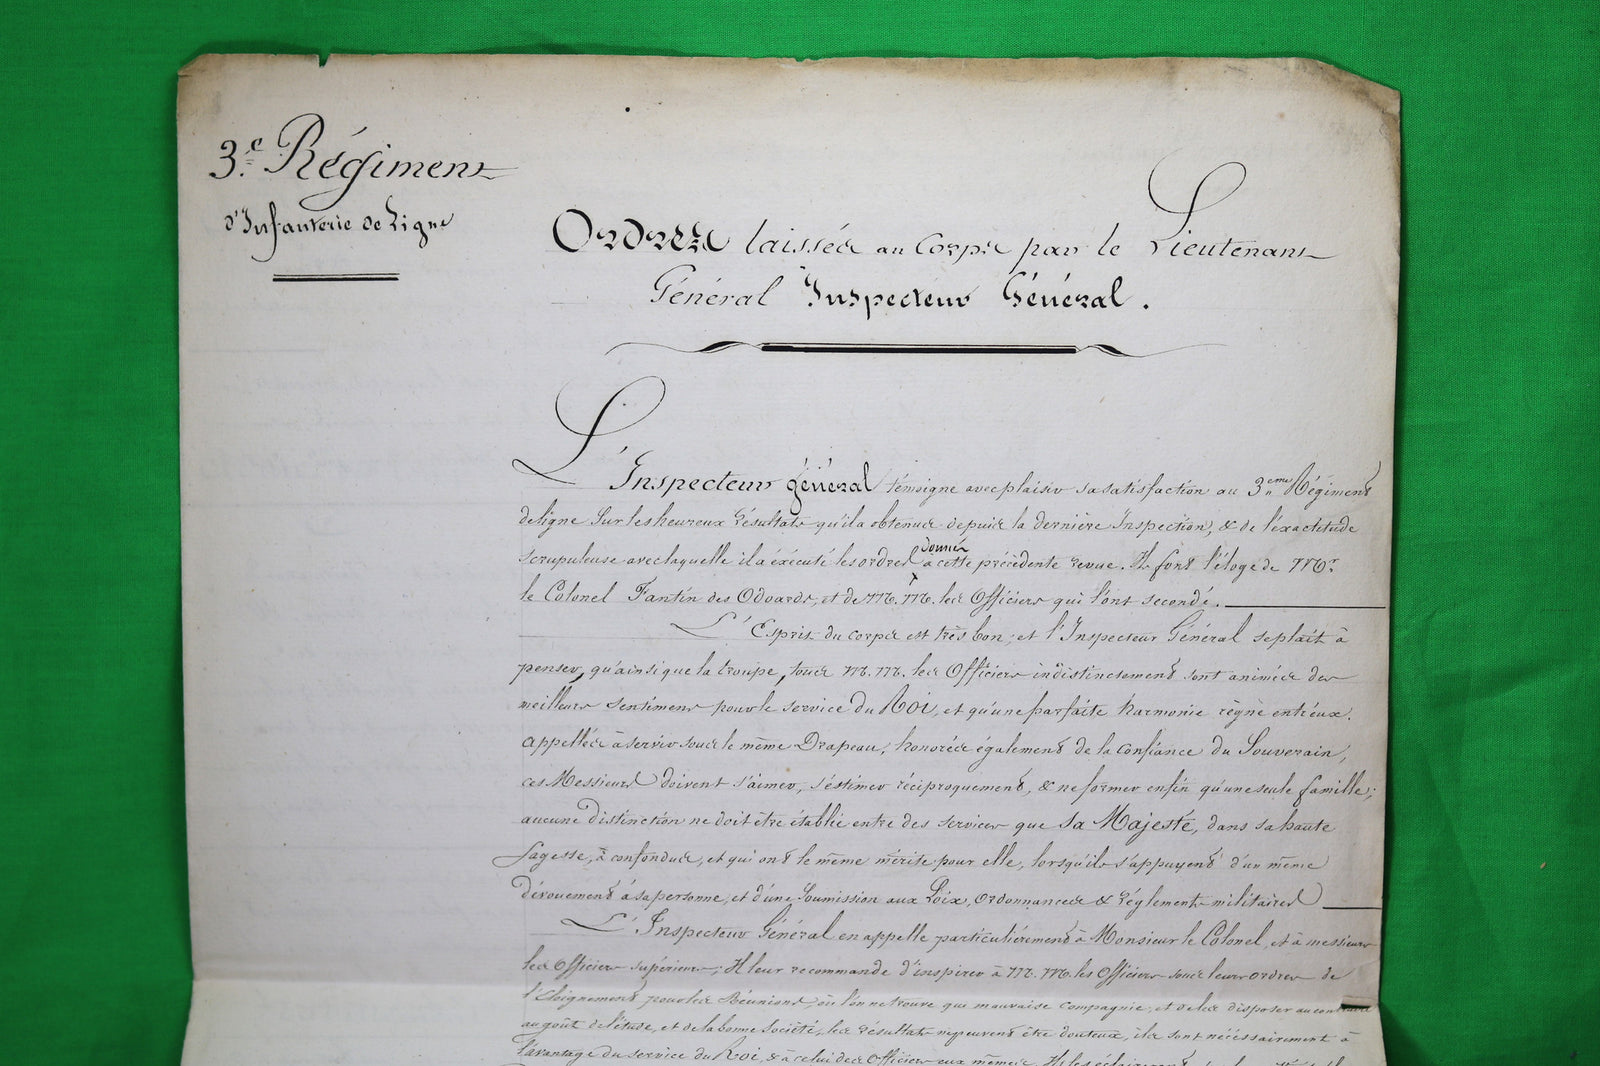 3.e Régiment
d'Infanterie de Ligne
Ordres laissés au Corps par le Lieutenant
Général Inspecteur Général.
L'Inspecteur général témoigne avec plaisir sa satisfaction au 3.eme Régiment
de ligne sur les heureux résultats qu'il a obtenus depuis la dernière Inspection, & de l'éxactitude
donnés
scrupuleuse avec laquelle il a éxécuté les ordres à cette précédente revue. Il font l'éloge de Mr.
le Colonel Fantin des Odoards, et de M.M. les Officiers qui l'ont secondé.
L'Esprit du corps est très bon; et l'Inspecteur Général se plait à
penser, qu'ainsi que la troupe, tous M.M. les Officiers indistinctement sont animés des
meilleurs sentimens pour le service du Roi, et qu'une parfaite harmonie règne entr'eux.
appellés à servir sous le même Drapeau, honorés également de la confiance du Souverain,
ces Messieurs doivent s'aimer, s'éstimer réciproquement, & ne former enfin qu'une seule famille;
aucune distinction ne doit être établie entre des services que sa Majesté, dans sa haute
sagesse, à confondus, et qui ont le même mérite pour elle, lorsqu'ils s'appuyent d'un même
dévouement à sa personne, et d'une soumission aux Loix, Ordonnances & Réglements militaires
L'Inspecteur Général en appelle particulièrement à Monsieur le Colonel, et à messieurs
les Officiers supérieurs; Il leur recommande d'inspirer à M.M. les Officiers sous leurs ordres de
l'Eloignement pour les Réunions où l'on ne trouve que mauvaise compagnie, et de les disposer au contraire
au goût de l'étude, et de la bonne société, les résultats ne peuvent être douteux, ils sont nécéssairement à
l'avantage du service du Roi, & à celui des Officiers eux mêmes.